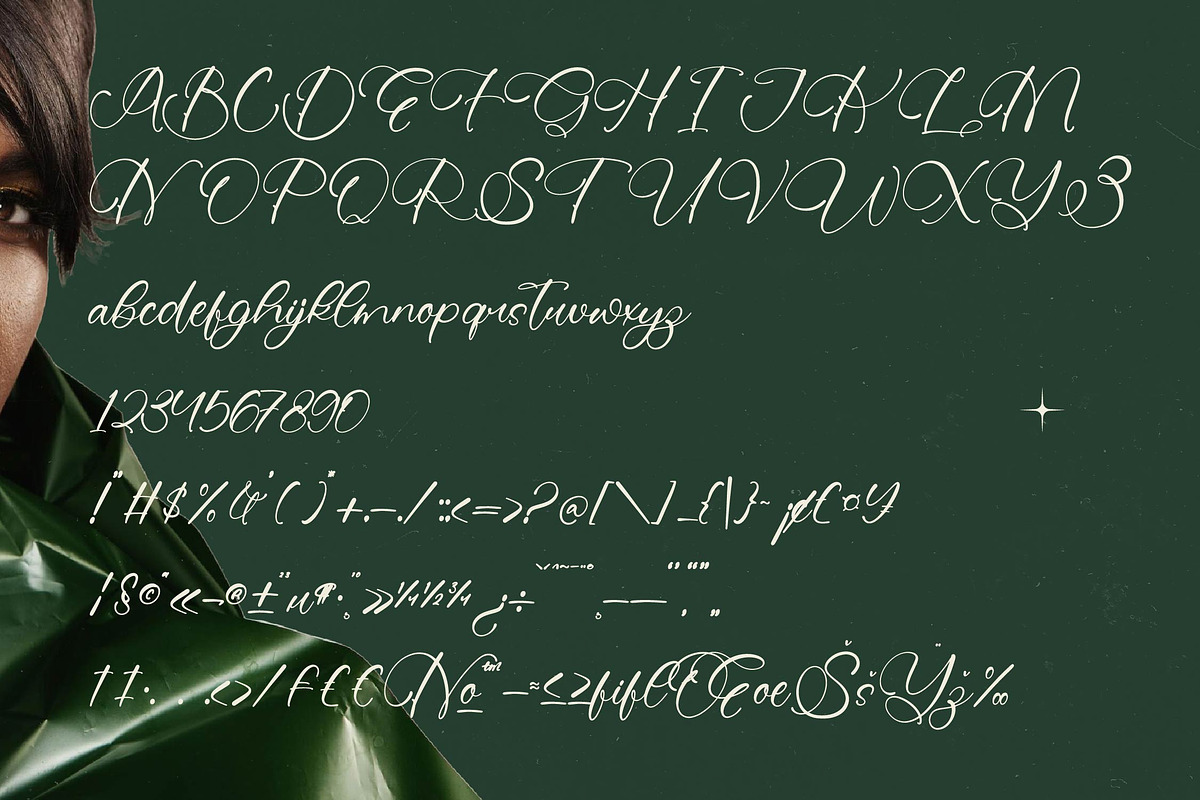 ABCDEFGHIJKLM
NOPQRSTUVWXYZ
abcdefghijklmnopqrstuvwxyz
1234567890
!"#$%&'()*+,-./:;<=>?@[\]_{|}~¡¢£¤¥
¦§©ª«¬®±²³µ¶·¸¹º»¼½¾¿÷
†‡•…‹›⁄ƒ£€№™−≈≤≥fiflŒœŠšŸž‰